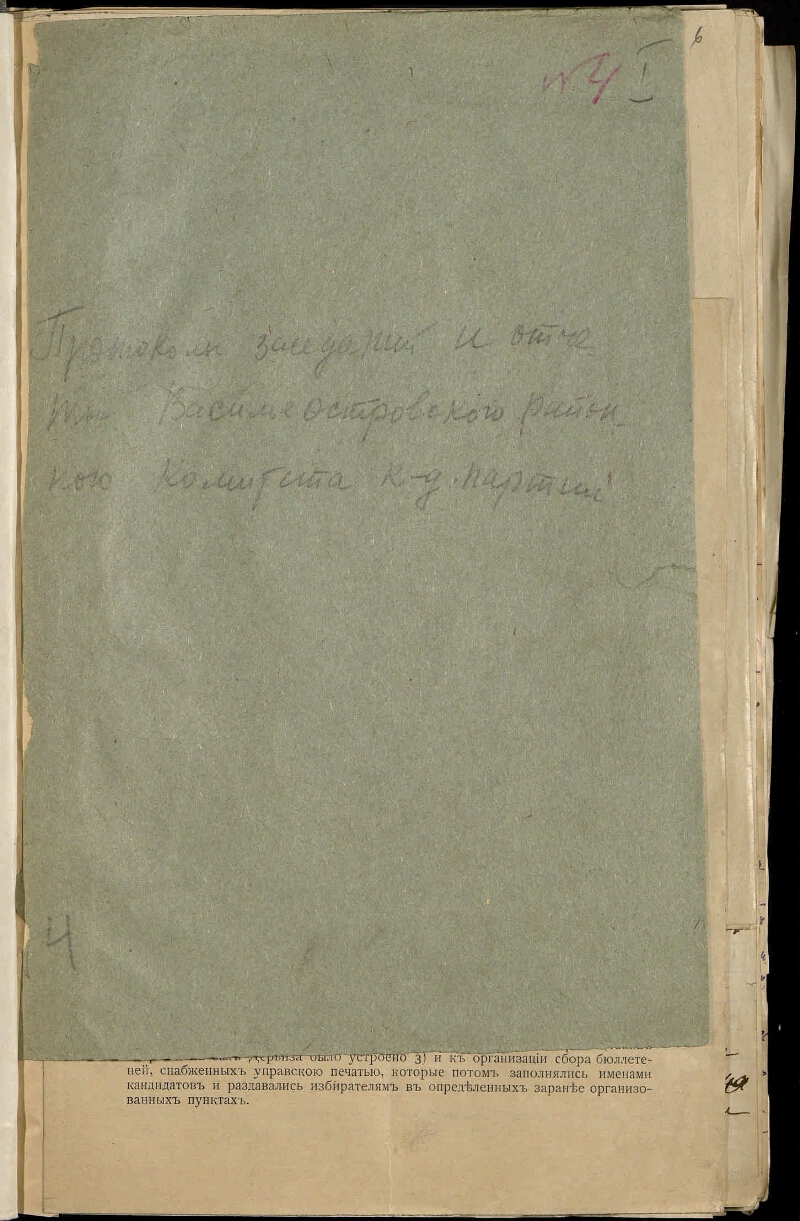 6
№ 4 I
Протоколы заседаний и отче
ты Василеостровского район
ного Комитета к-д. партии
4
Дервиза было устроено 3) и къ организаціи сбора бюллете-
ней, снабженныхъ управскою печатью, которые потомъ заполнялись именами
кандидатовъ и раздавались избирателямъ въ опредѣленныхъ заранѣе организо-
ванныхъ пунктахъ.